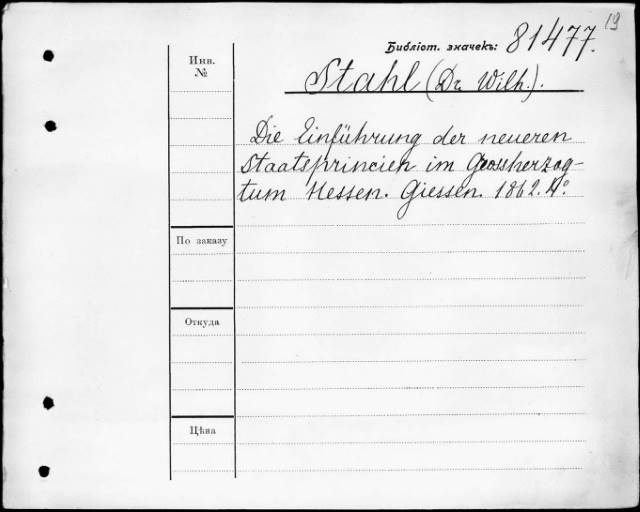 19
Библіот. значекъ: 81477.
Инв.
№
Stahl (Dr. Wilh.).
Die Einführung der neueren
Staatsprincien im Grossherzog-
tum Hessen. Giessen. 1862. 4°.
По заказу
Откуда
Цѣна